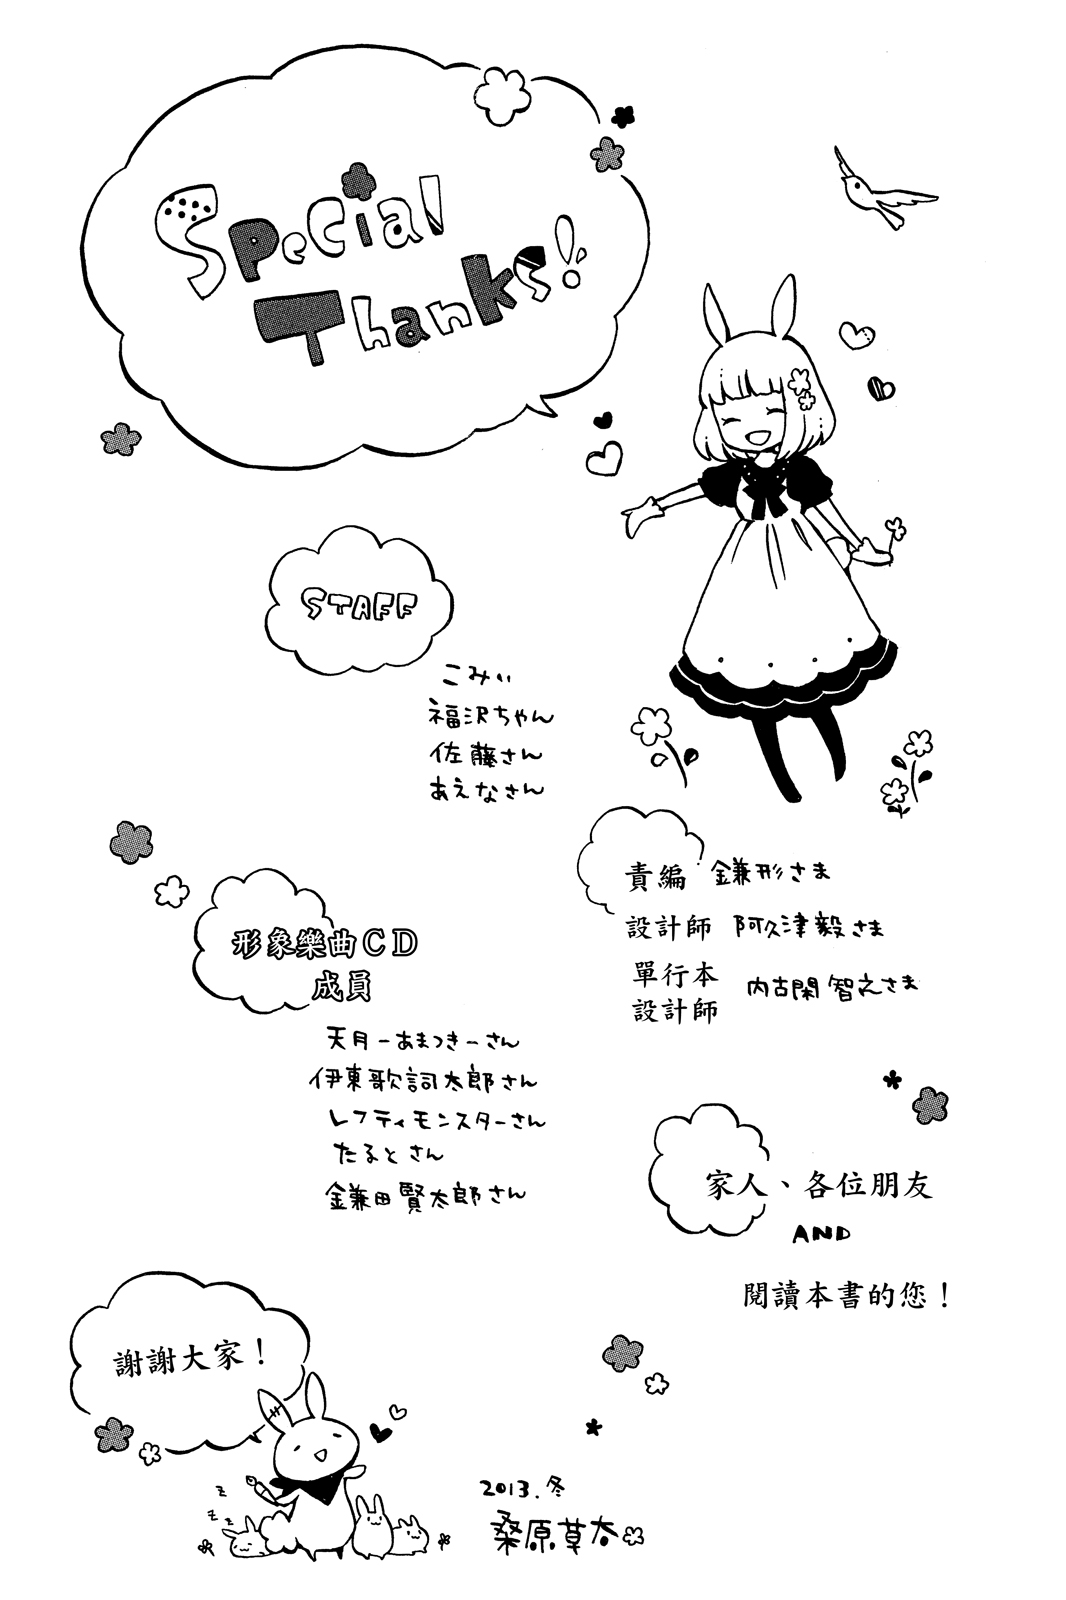 Special
Thanks!
STAFF
こみぃ
福沢ちゃん
佐藤さん
あえなさん
責編 鎌形さま
設計師 阿久津毅さま
單行本
設計師
内古閑智之さま
形象樂曲CD
成員
天月-あまつき-さん
伊東歌詞太郎さん
レフティモンスターさん
たるとさん
鎌田賢太郎さん
家人、各位朋友
AND
閱讀本書的您！
謝謝大家！
z z z
2013.冬
桑原草太